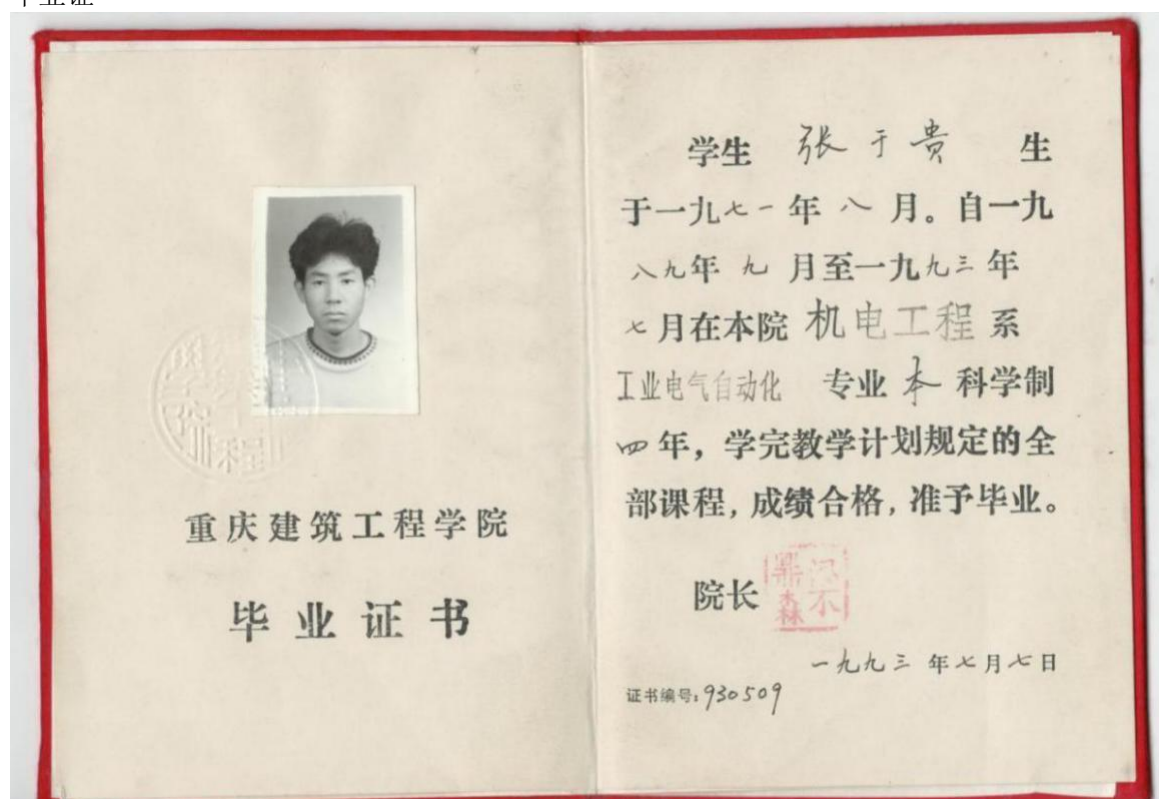 毕业证
重庆建筑工程学院
毕业证书
学生 张于贵 生
于一九七一年 八 月。自一九
八九年 九 月至一九九三年
七月在本院 机电工程 系
工业电气自动化 专业 本 科学制
四年，学完教学计划规定的全
部课程，成绩合格，准予毕业。
院长
一九九三 年七月七日
证书编号：930509